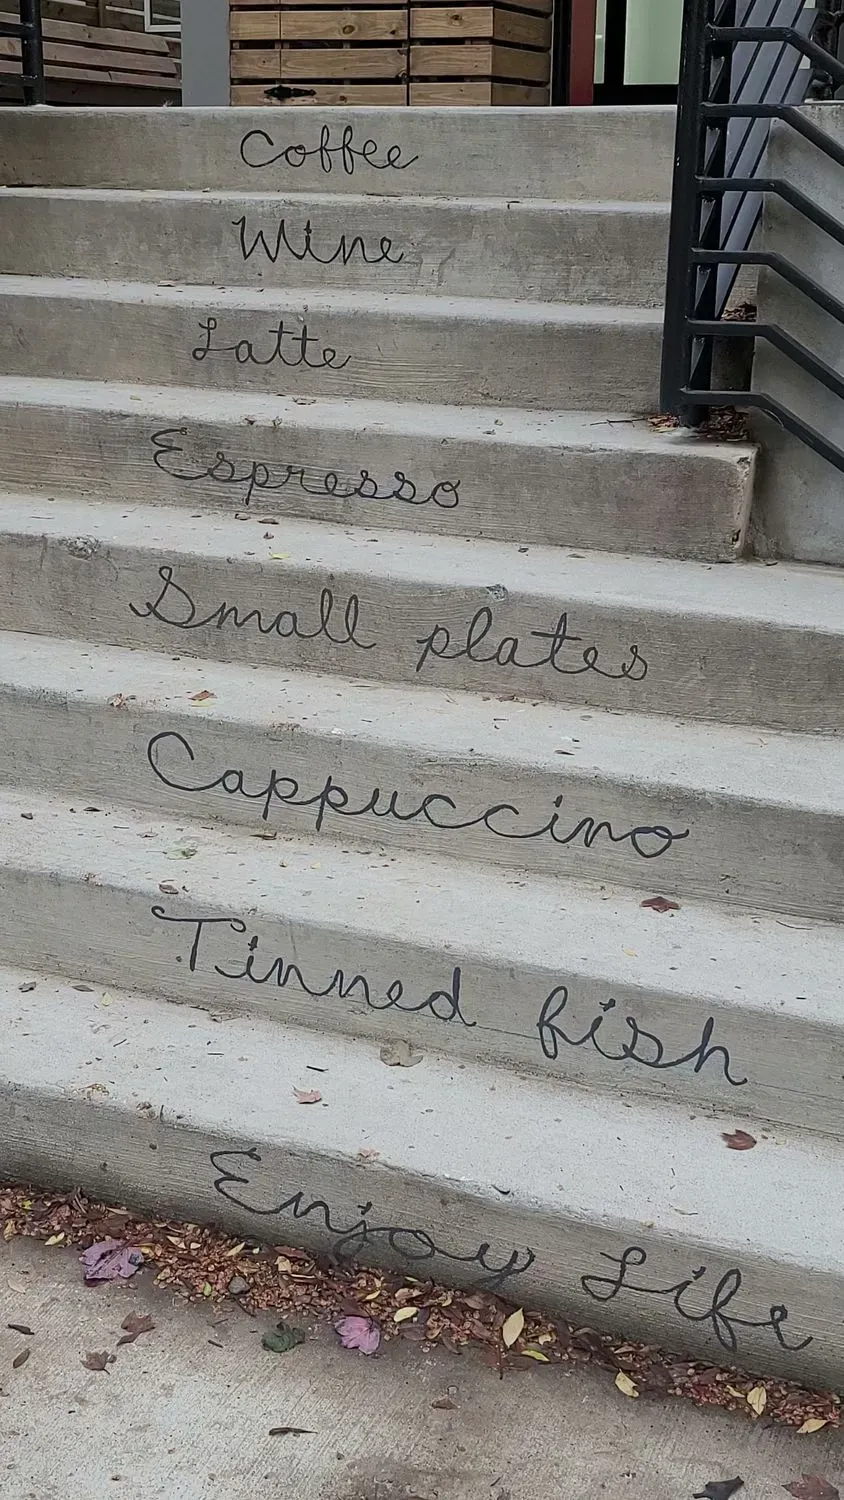 Coffee
Wine
Latte
Espresso
Small plates
Cappuccino
Tinned fish
Enjoy Life